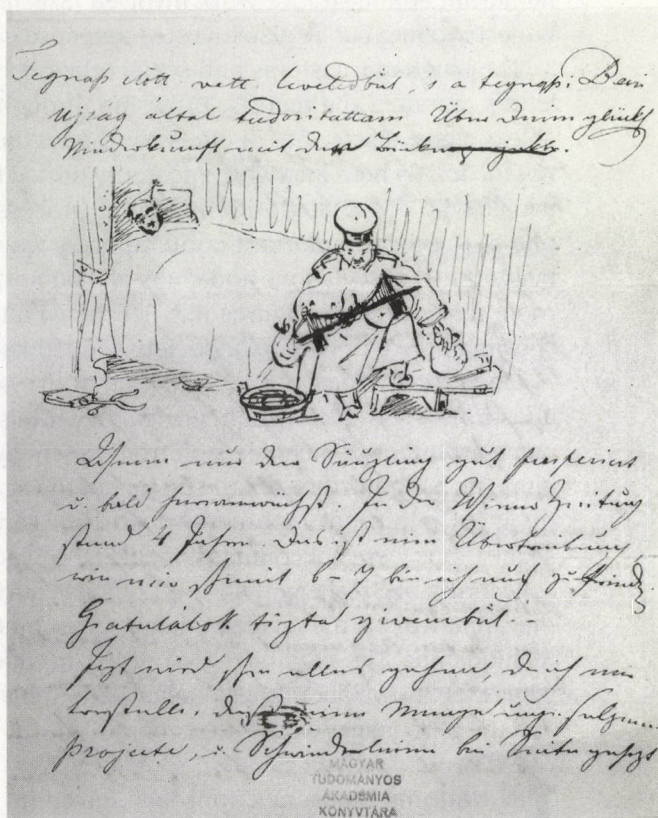 Tegnap előtt vett leveledbül, s a tegnapi Bécsi
Ujság által tudósittattam Über Deine glückl
Niederkunft mit der
Wenn nur der Säugling gut prosperirt
u. bald heranwächst. In der Wiener Zeitung
stand 4 Jahre. Das ist eine Übertreibung
wie mir scheint 6 – 7 bin ich auch zufrieden
Gratulálok tiszta szivembül. –
Jezt wird schon alles gehen,
eine Menge
Projecte, u. Schwindeleien bei Seite gesezt
MAGYAR
TUDOMÁNYOS
AKADÉMIA
KÖNYVTÁRA